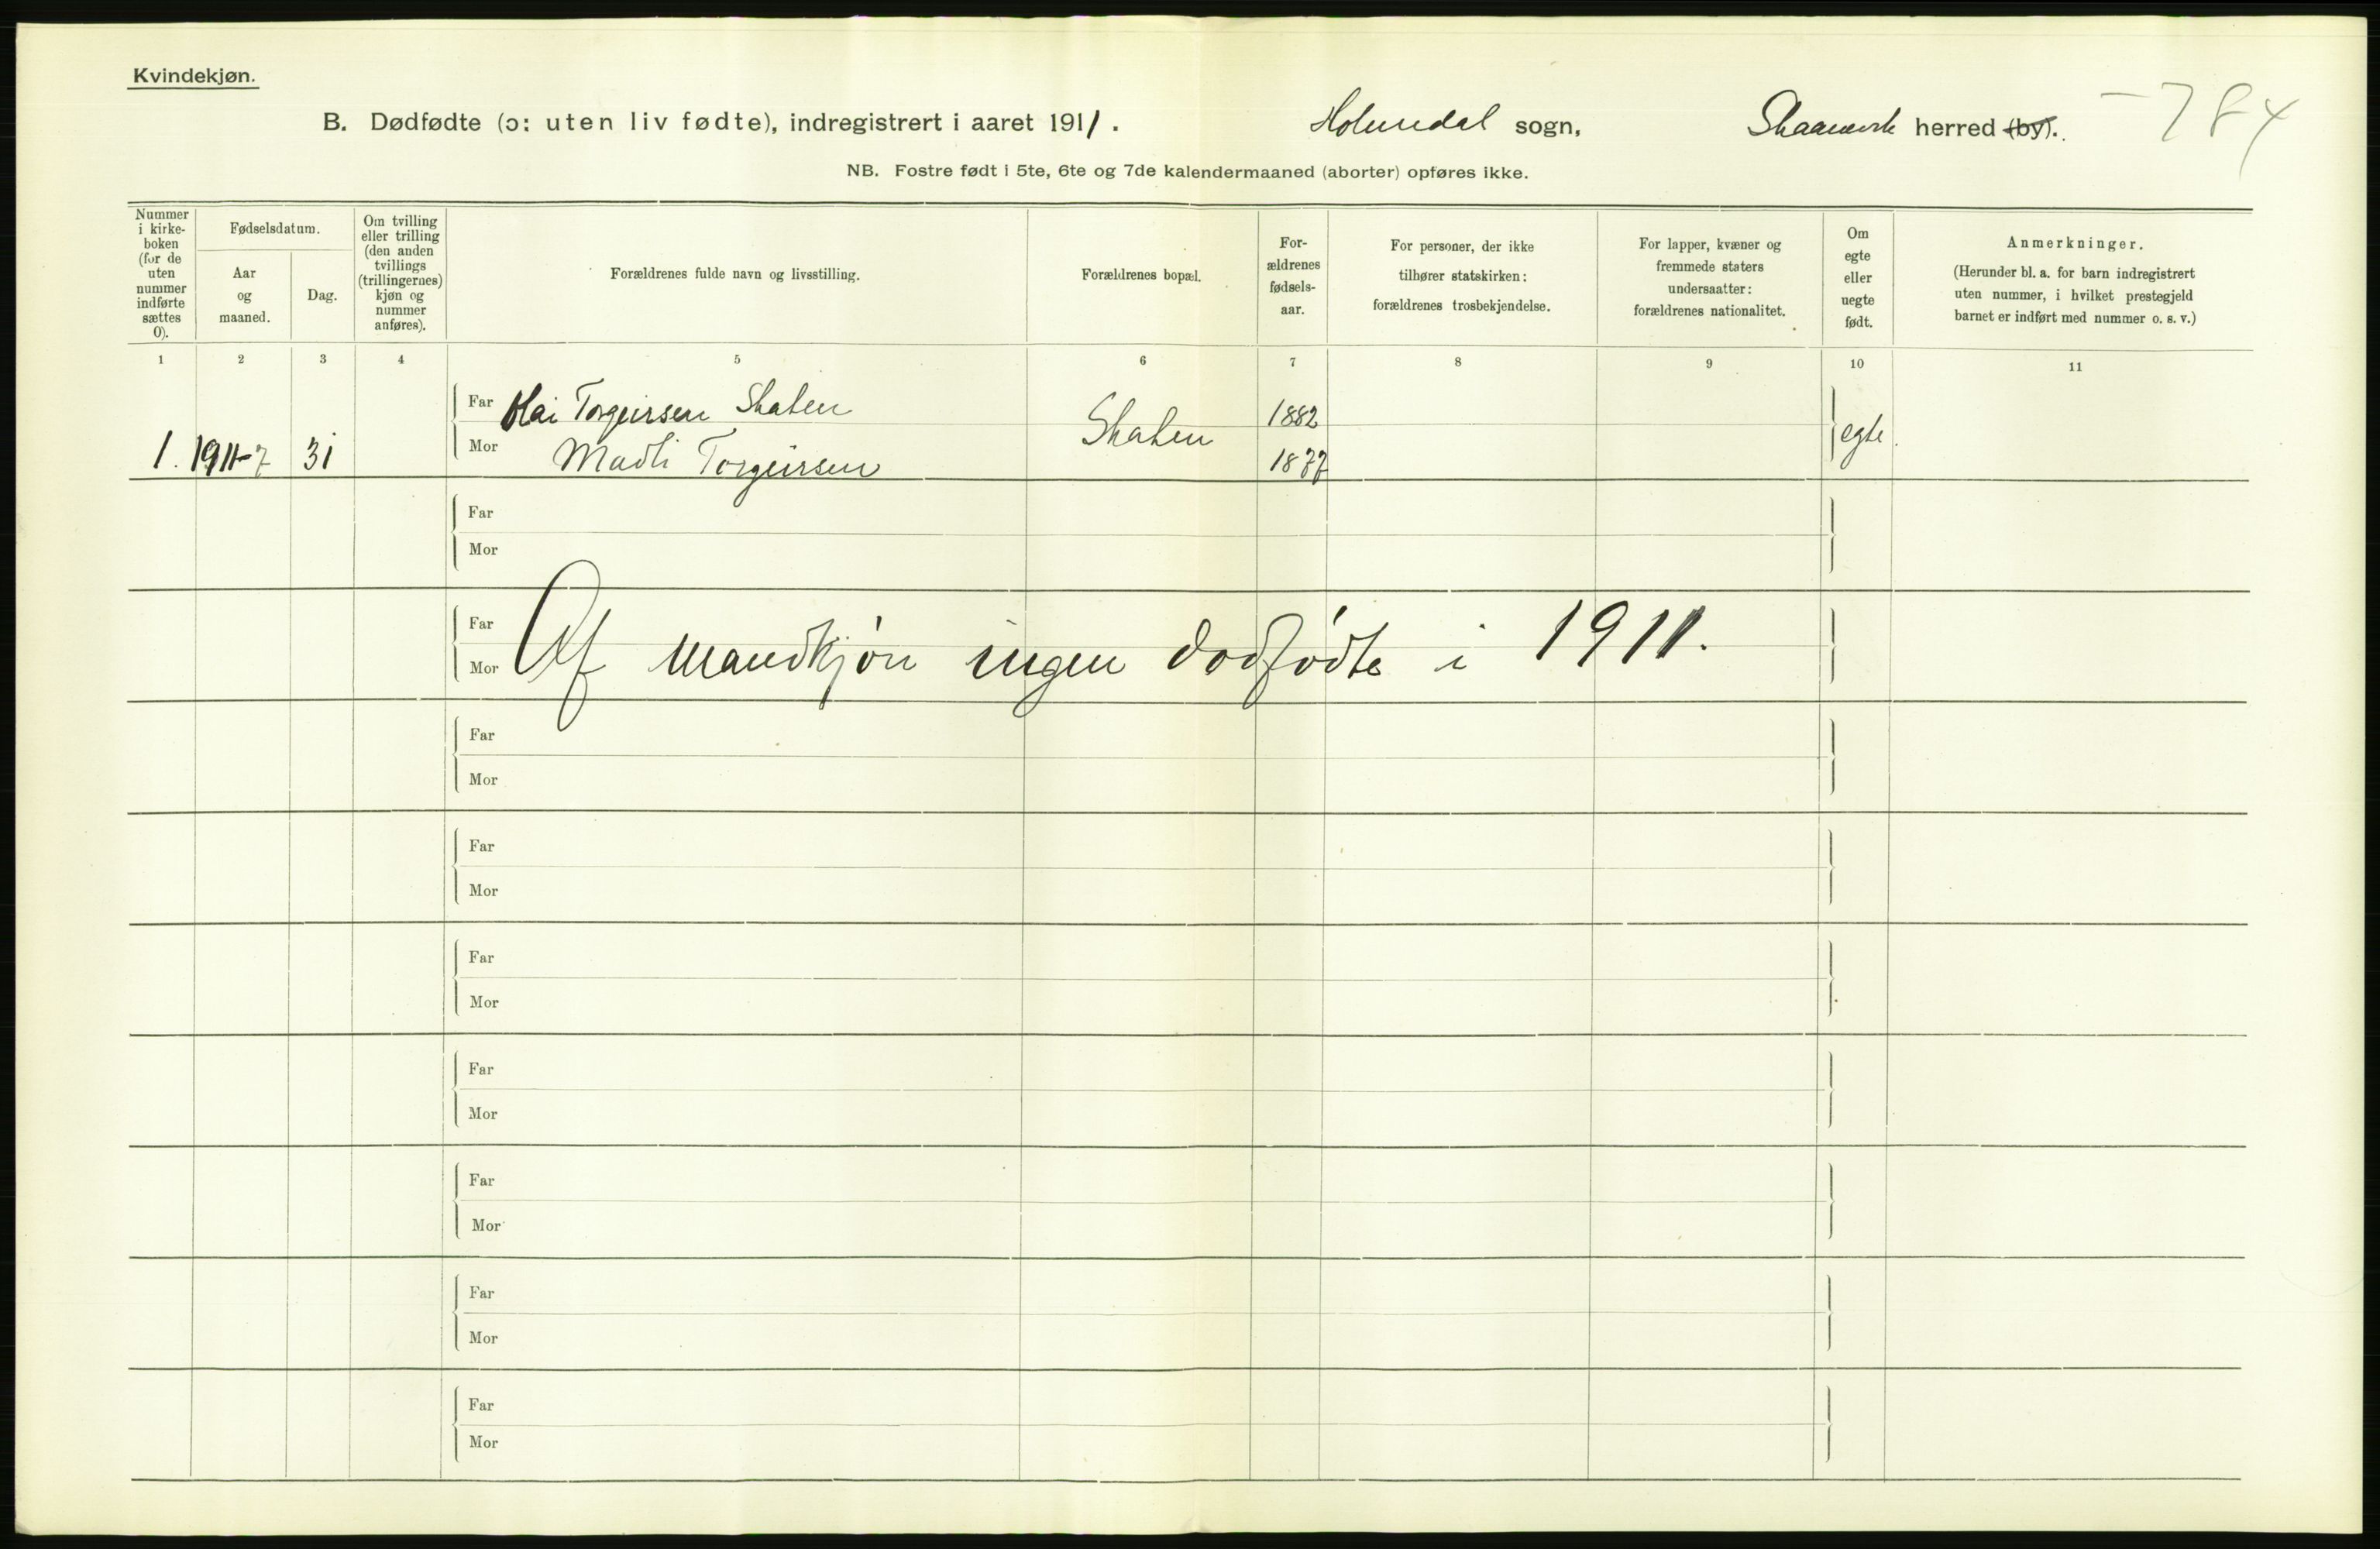 Kvindekjøn.
B. Dødfødte (ɔ: uten liv fødte), indregistrert i aaret 1911. Holmedal sogn, Skaanevik herred (by).
784
NB. Fostre født i 5te, 6te og 7de kalendermaaned (aborter) opføres ikke.
Nummer i kirke-boken (for de uten nummer indførte sættes 0).
Fødselsdatum.
Aar og maaned.
Dag.
Om tvilling eller trilling (den anden tvillings (trillingernes) kjøn og nummer anføres).
Forældrenes fulde navn og livsstilling.
Forældrenes bopæl.
For-ældrenes fødsels-aar.
For personer, der ikke tilhører statskirken: forældrenes trosbekjendelse.
For lapper, kvæner og fremmede staters undersaatter: forældrenes nationalitet.
Om egte eller uegte født.
Anmerkninger.
(Herunder bl. a. for barn indregistrert uten nummer, i hvilket prestegjeld barnet er indført med nummer o. s. v.)
1 2 3 4 5 6 7 8 9 10 11
Far Olai Torgeirsen Skaten 1882
1. 1911-7 31 Skaten egte.
Mor Madli Torgeirsen 1877
Far
Mor
Far
Mor Af Mandkjøn ingen dødfødte i 1911.
Far
Mor
Far
Mor
Far
Mor
Far
Mor
Far
Mor
Far
Mor
Far
Mor